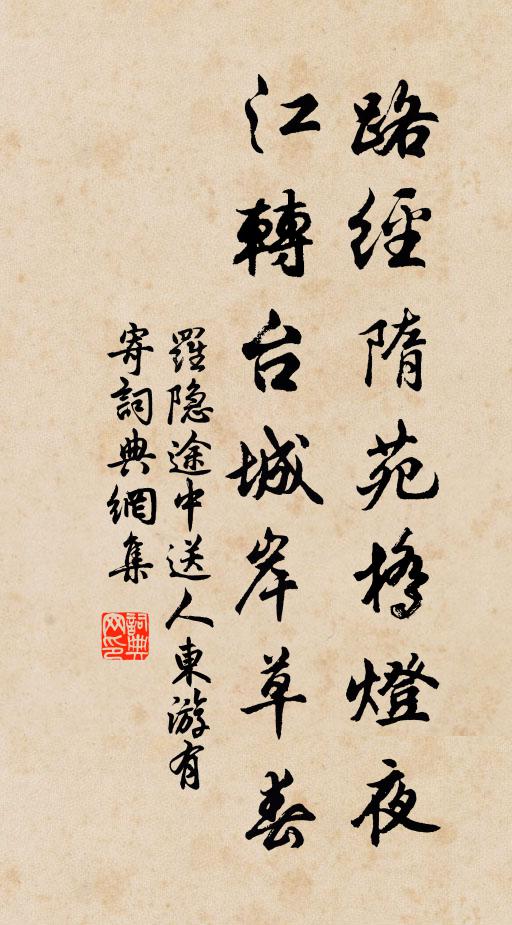 路經隋苑橋燈夜
江轉台城岸草春
羅隐途中送人東游有
寄詞典網集
詞典
网印